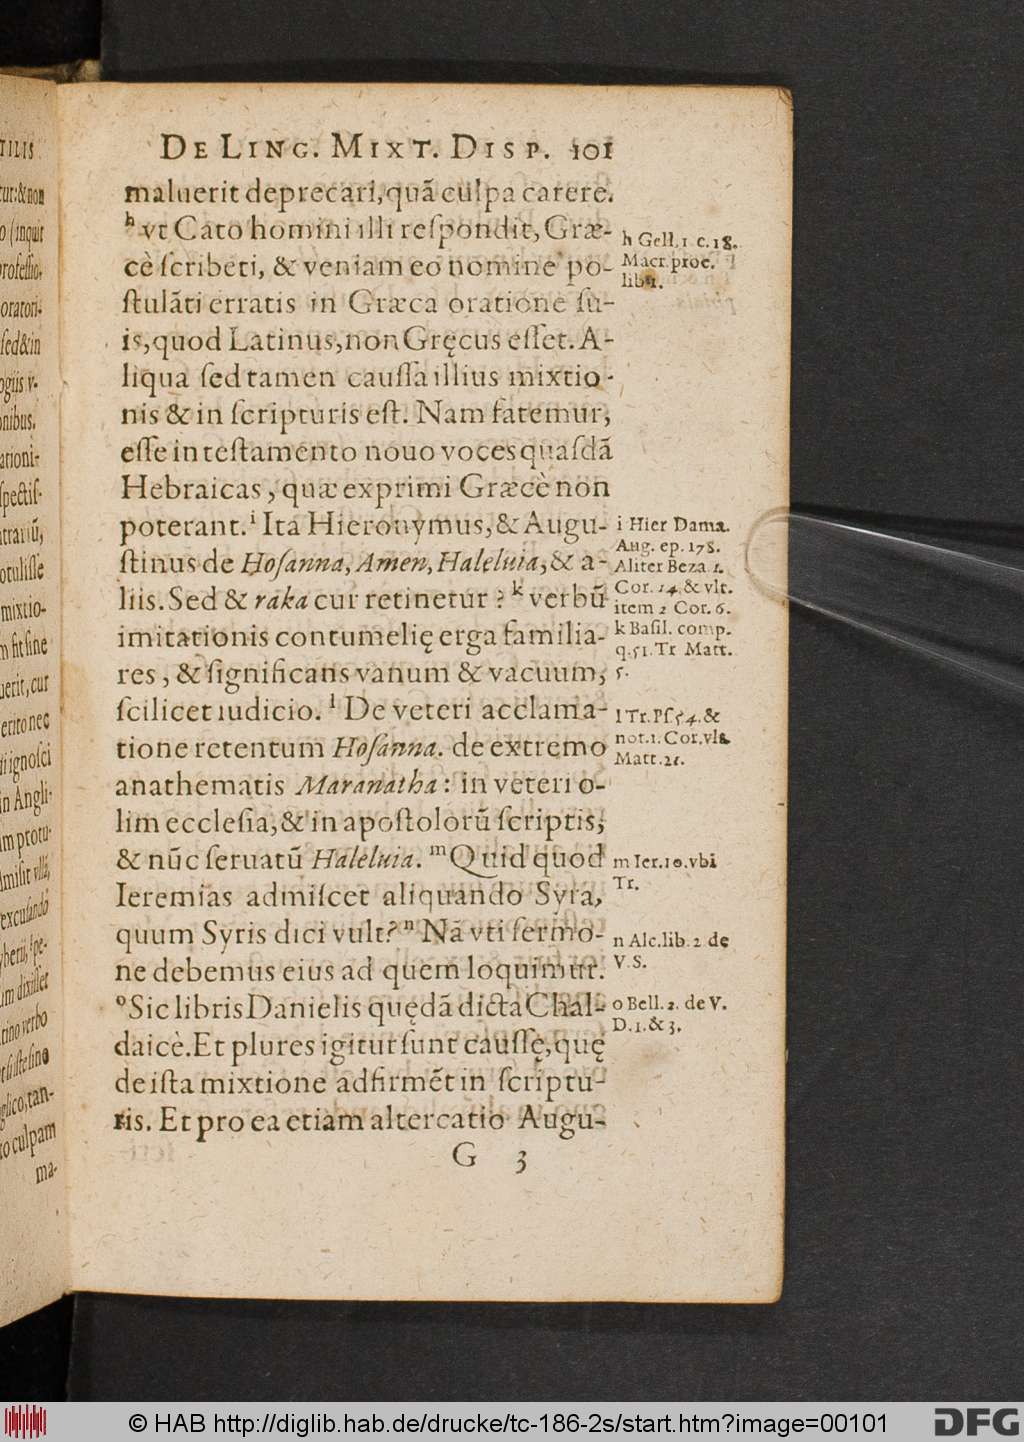 DE LING. MIXT. DISP. 101
maluerit deprecari, quã culpa carere.
h vt Cato homini illi reſpondit, Græ-
cè ſcribeti, & veniam eo nomine po-
ſtulãti erratis in Græca oratione ſu-
is, quod Latinus, non Gręcus eſſet. A-
liqua ſed tamen cauſſa illius mixtio-
nis & in ſcripturis eſt. Nam fatemur,
eſſe in teſtamento nouo voces quaſdã
Hebraicas, quæ exprimi Græcè non
poterant. i Ita Hieronymus, & Augu-
ſtinus de Hoſanna, Amen, Haleluia, & a-
liis. Sed & raka cur retinetur? k verbũ
imitationis contumelię erga familia-
res, & ſignificans vanum & vacuum,
ſcilicet iudicio. l De veteri acclama-
tione retentum Hoſanna. de extremo
anathematis Maranatha: in veteri o-
lim eccleſia, & in apoſtolorũ ſcriptis,
& nũc ſeruatũ Haleluia. m Quid quod
Ieremias admiſcet aliquando Syra,
quum Syris dici vult? n Nã vti ſermo-
ne debemus eius ad quem loquimur.
o Sic libris Danielis quędã dicta Chal-
daicè. Et plures igitur ſunt cauſſę, quę
de iſta mixtione adfirmẽt in ſcriptu-
ris. Et pro ea etiam altercatio Augu-
G 3
h Gell. 1 c. 18.
Macr. proe.
lib. 1.
i Hier Dama.
Aug. ep. 178.
Aliter Beza 1.
Cor. 14. & vlt.
item 2 Cor. 6.
k Baſil. comp.
q. 51. Tr Matt.
5.
l Tr. Pſ 54. &
not. 1. Cor. vlt.
Matt. 21.
m Ier. 10. vbi
Tr.
n Alc. lib. 2 de
V. S.
o Bell. 2. de V.
D. 1. & 3.
© HAB http://diglib.hab.de/drucke/tc-186-2s/start.htm?image=00101
DFG